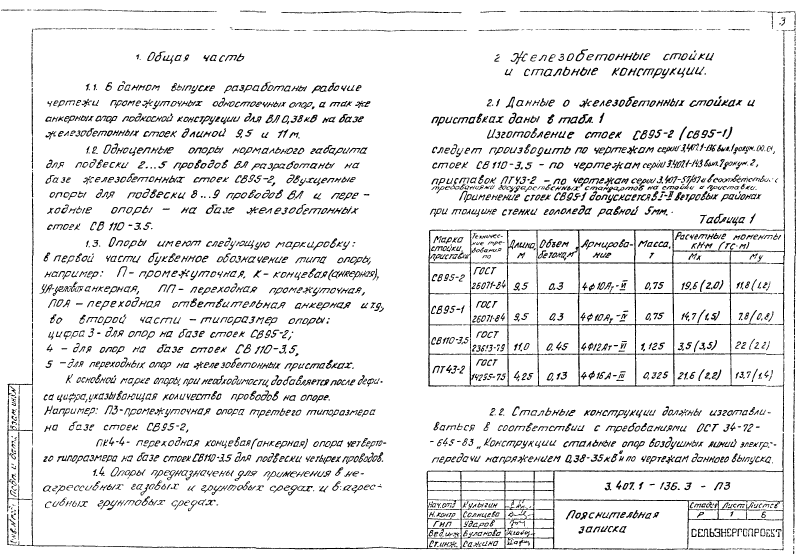 3
1. Общая часть
1.1. В данном выпуске разработаны рабочие
чертежи промежуточных одностоечных опор, а так же
анкерных опор подкосной конструкции для ВЛ 0,38кВ на базе
железобетонных стоек длиной 9,5 и 11м.
1.2. Одноцепные опоры нормального габарита
для подвески 2...5 проводов ВЛ разработаны на
базе железобетонных стоек СВ95-2, двухцепные
опоры для подвески 8...9 проводов ВЛ и пере-
ходные опоры - на базе железобетонных
стоек СВ 110-3.5.
1.3. Опоры имеют следующую маркировку:
в первой части буквенное обозначение типа опоры,
например: П - промежуточная, К - концевая (анкерная),
УА-угловая анкерная, ПП - переходная промежуточная,
ПОА - переходная ответвительная анкерная и т.д,
во второй части - типоразмер опоры:
цифра 3 - для опор на базе стоек СВ95-2;
4 - для опор на базе стоек СВ 110-3,5,
5 - для переходных опор на железобетонных приставках.
К основной марке опоры, при необходимости, добавляется после дефи-
са цифра, указывающая количество проводов на опоре.
Например: П3-промежуточная опора третьего типоразмера
на базе стоек СВ95-2,
ПК4-4- переходная концевая (анкерная) опора четверто-
го типоразмера на базе стоек СВ110-3.5 для подвески четырех проводов.
1.4. Опоры предназначены для применения в не-
агрессивных газовых и грунтовых средах и в агрес-
сивных грунтовых средах.
2 Железобетонные стойки
и стальные конструкции.
2.1 Данные о железобетонных стойках и
приставках даны в табл. 1
Изготовление стоек СВ95-2 (СВ95-1)
следует производить по чертежам серии 3.407.1-136 вып.1 докум. 00.01,
стоек СВ 110-3.5 - по чертежам серии 3.407.1-143 вып.7 докум. 2,
приставок ПТ43-2 - по чертежам серии 3.407-57/87 в соответствии с
требованиями государственных стандартов на стойки и приставки.
Применение стоек СВ95-1 допускается в I-II ветровых районах
при толщине стенки гололеда равной 5мм.
Таблица 1
Марка стойки, приставки | Технические требования по | Длина, м | Объем бетона, м³ | Армирование | Масса, т | Расчетные моменты кН·м (тс·м) Мх | Му
СВ95-2 | ГОСТ 26071-84 | 9,5 | 0.3 | 4ф10Ат-VI | 0,75 | 19,6 (2.0) | 11,8 (1,2)
СВ95-1 | ГОСТ 26071-84 | 9,5 | 0,3 | 4ф10Ат-VI | 0,75 | 14,7 (1,5) | 7.8 (0,8)
СВ110-3,5 | ГОСТ 23613-79 | 11,0 | 0.45 | 4ф12Ат-VI | 1,125 | 3,5 (3,5) | 22 (2.2)
ПТ43-2 | ГОСТ 14295-75 | 4,25 | 0,13 | 4ф16А-III | 0,325 | 21,6 (2.2) | 13,7 (1,4)
2.2. Стальные конструкции должны изготавли-
ваться в соответствии с требованиями ОСТ 34-72-
-645-83 „Конструкции стальные опор воздушных линий электро-
передачи напряжением 0,38-35кВ" и по чертежам данного выпуска.
3.407.1 - 136.3 - ПЗ
Нач.отд Кулыгин
Н.контр Солнцева
ГИП Ударов
Вед.инж Буланова
Ст.инж. Сажина
Пояснительная
записка
Стадия Лист Листов
Р 1 6
СЕЛЬЭНЕРГОПРОЕКТ
Инв.№подл. Подп. и дата Взам.инв.№